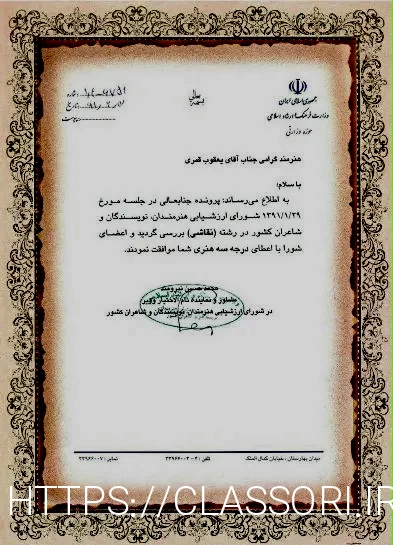 بسمه تعالی
جمهوری اسلامی ایران
وزارت فرهنگ و ارشاد اسلامی
حوزه وزارتی
شماره:
تاریخ:
پیوست
هنرمند گرامی جناب آقای یعقوب قمری
با سلام؛
به اطلاع می‌رساند: پرونده جنابعالی در جلسه مورخ
۱۳۹۱/۱/۲۹ شـورای ارزشـیابی هنرمنـدان، نویسـندگان و
شاعران کشور در رشته (نقاشی) بررسی گردید و اعضـای
شورا با اعطای درجه سه هنری شما موافقت نمودند.
محمدحسین نیرومند
مشاور و نماینده تام الاختیار وزیر
در شورای ارزشیابی هنرمندان، نویسندگان و شاعران کشور
میدان بهارستان، خیابان کمال الملک
تلفن: ۳-۳۳۹۶۶۰۰۲
نمابر: ۳۳۹۶۶۰۰۷
HTTPS://CLASSORI.IR